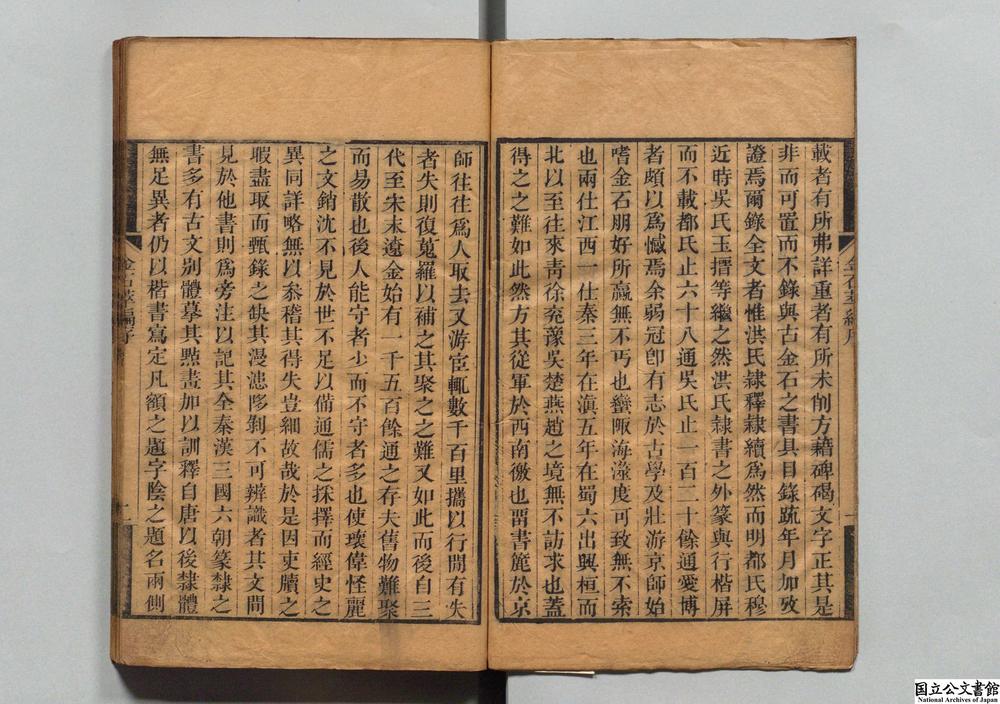 載者有所弗詳重者有所未削方藉碑碣文字正其是
非而可置而不錄與古金石之書具目錄疏年月加攷
證焉爾錄全文者惟洪氏隸釋隸續爲然而明都氏穆
近時吳氏玉搢等繼之然洪氏隸書之外篆與行楷屏
而不載都氏止六十八通吳氏止一百二十餘通愛博
者頗以爲憾焉余弱冠卽有志於古學及壯游京師始
嗜金石朋好所贏無不丐也蠻陬海澨度可致無不索
也兩仕江西一仕秦三年在滇五年在蜀六出興桓而
北以至往來靑徐兖豫吳楚燕趙之境無不訪求也蓋
得之之難如此然方其從軍於西南徼也畱書簏於京
師往往爲人取去又游宦輒數千百里攜以行閒有失
者失則復蒐羅以補之其聚之之難又如此而後自三
代至宋末遼金始有一千五百餘通之存夫舊物難聚
而易散也後人能守者少而不守者多也使瓌偉怪麗
之文銷沈不見於世不足以備通儒之採擇而經史之
異同詳略無以叅稽其得失豈細故哉於是因吏牘之
暇盡取而甄錄之缺其漫漶陊剝不可辨識者其文閒
見於他書則爲旁注以記其全秦漢三國六朝篆隸之
書多有古文別體摹其㸃畫加以訓釋自唐以後隸體
無足異者仍以楷書寫定凡額之題字陰之題名兩側
金石萃編序
一
金石萃編序
二
国立公文書館
National Archives of Japan